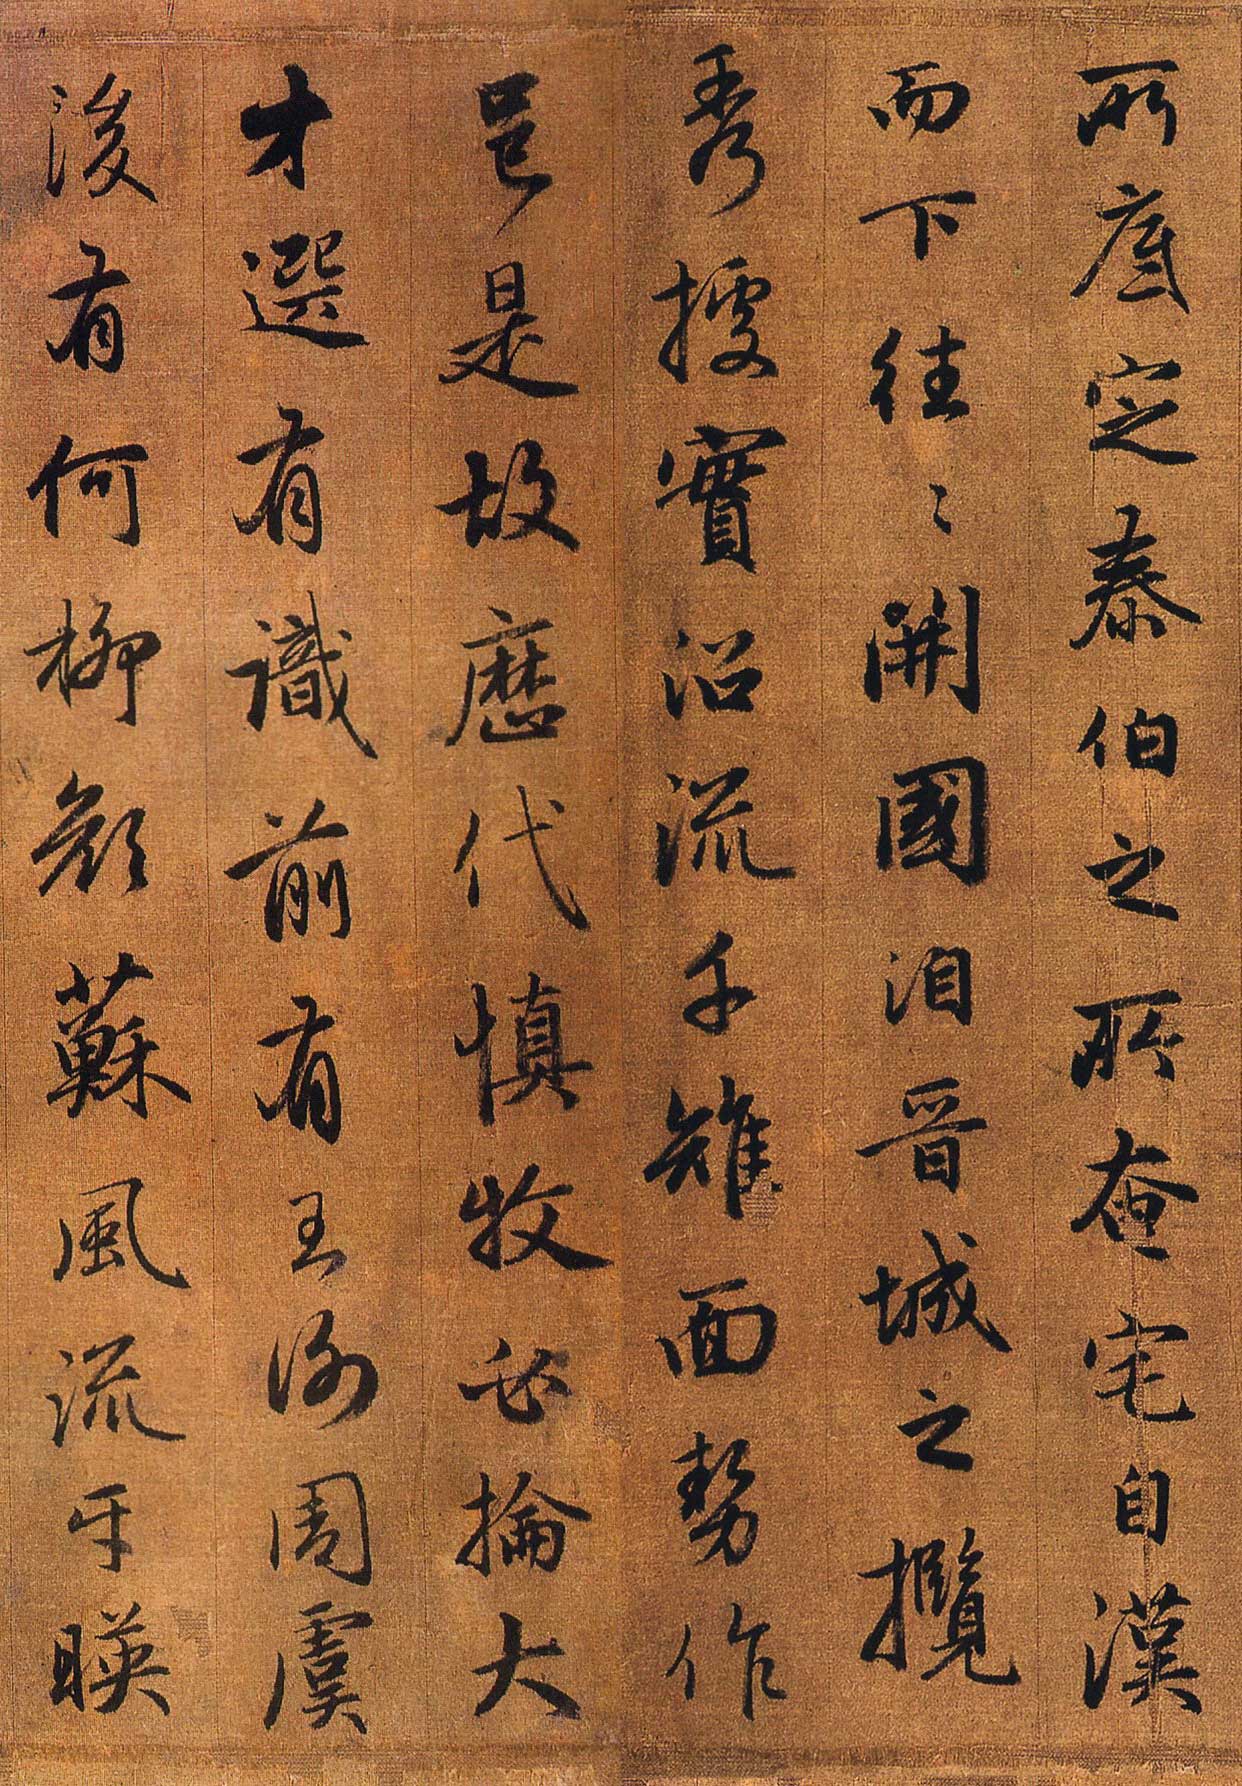 所底定泰伯之所奄宅自漢
而下往〻開國洎晉城之攬
秀據實沿流千雉面勢作
邑是故歷代慎牧必掄大
才選有識前有王謝周虞
後有何柳顏蘇風流互暎